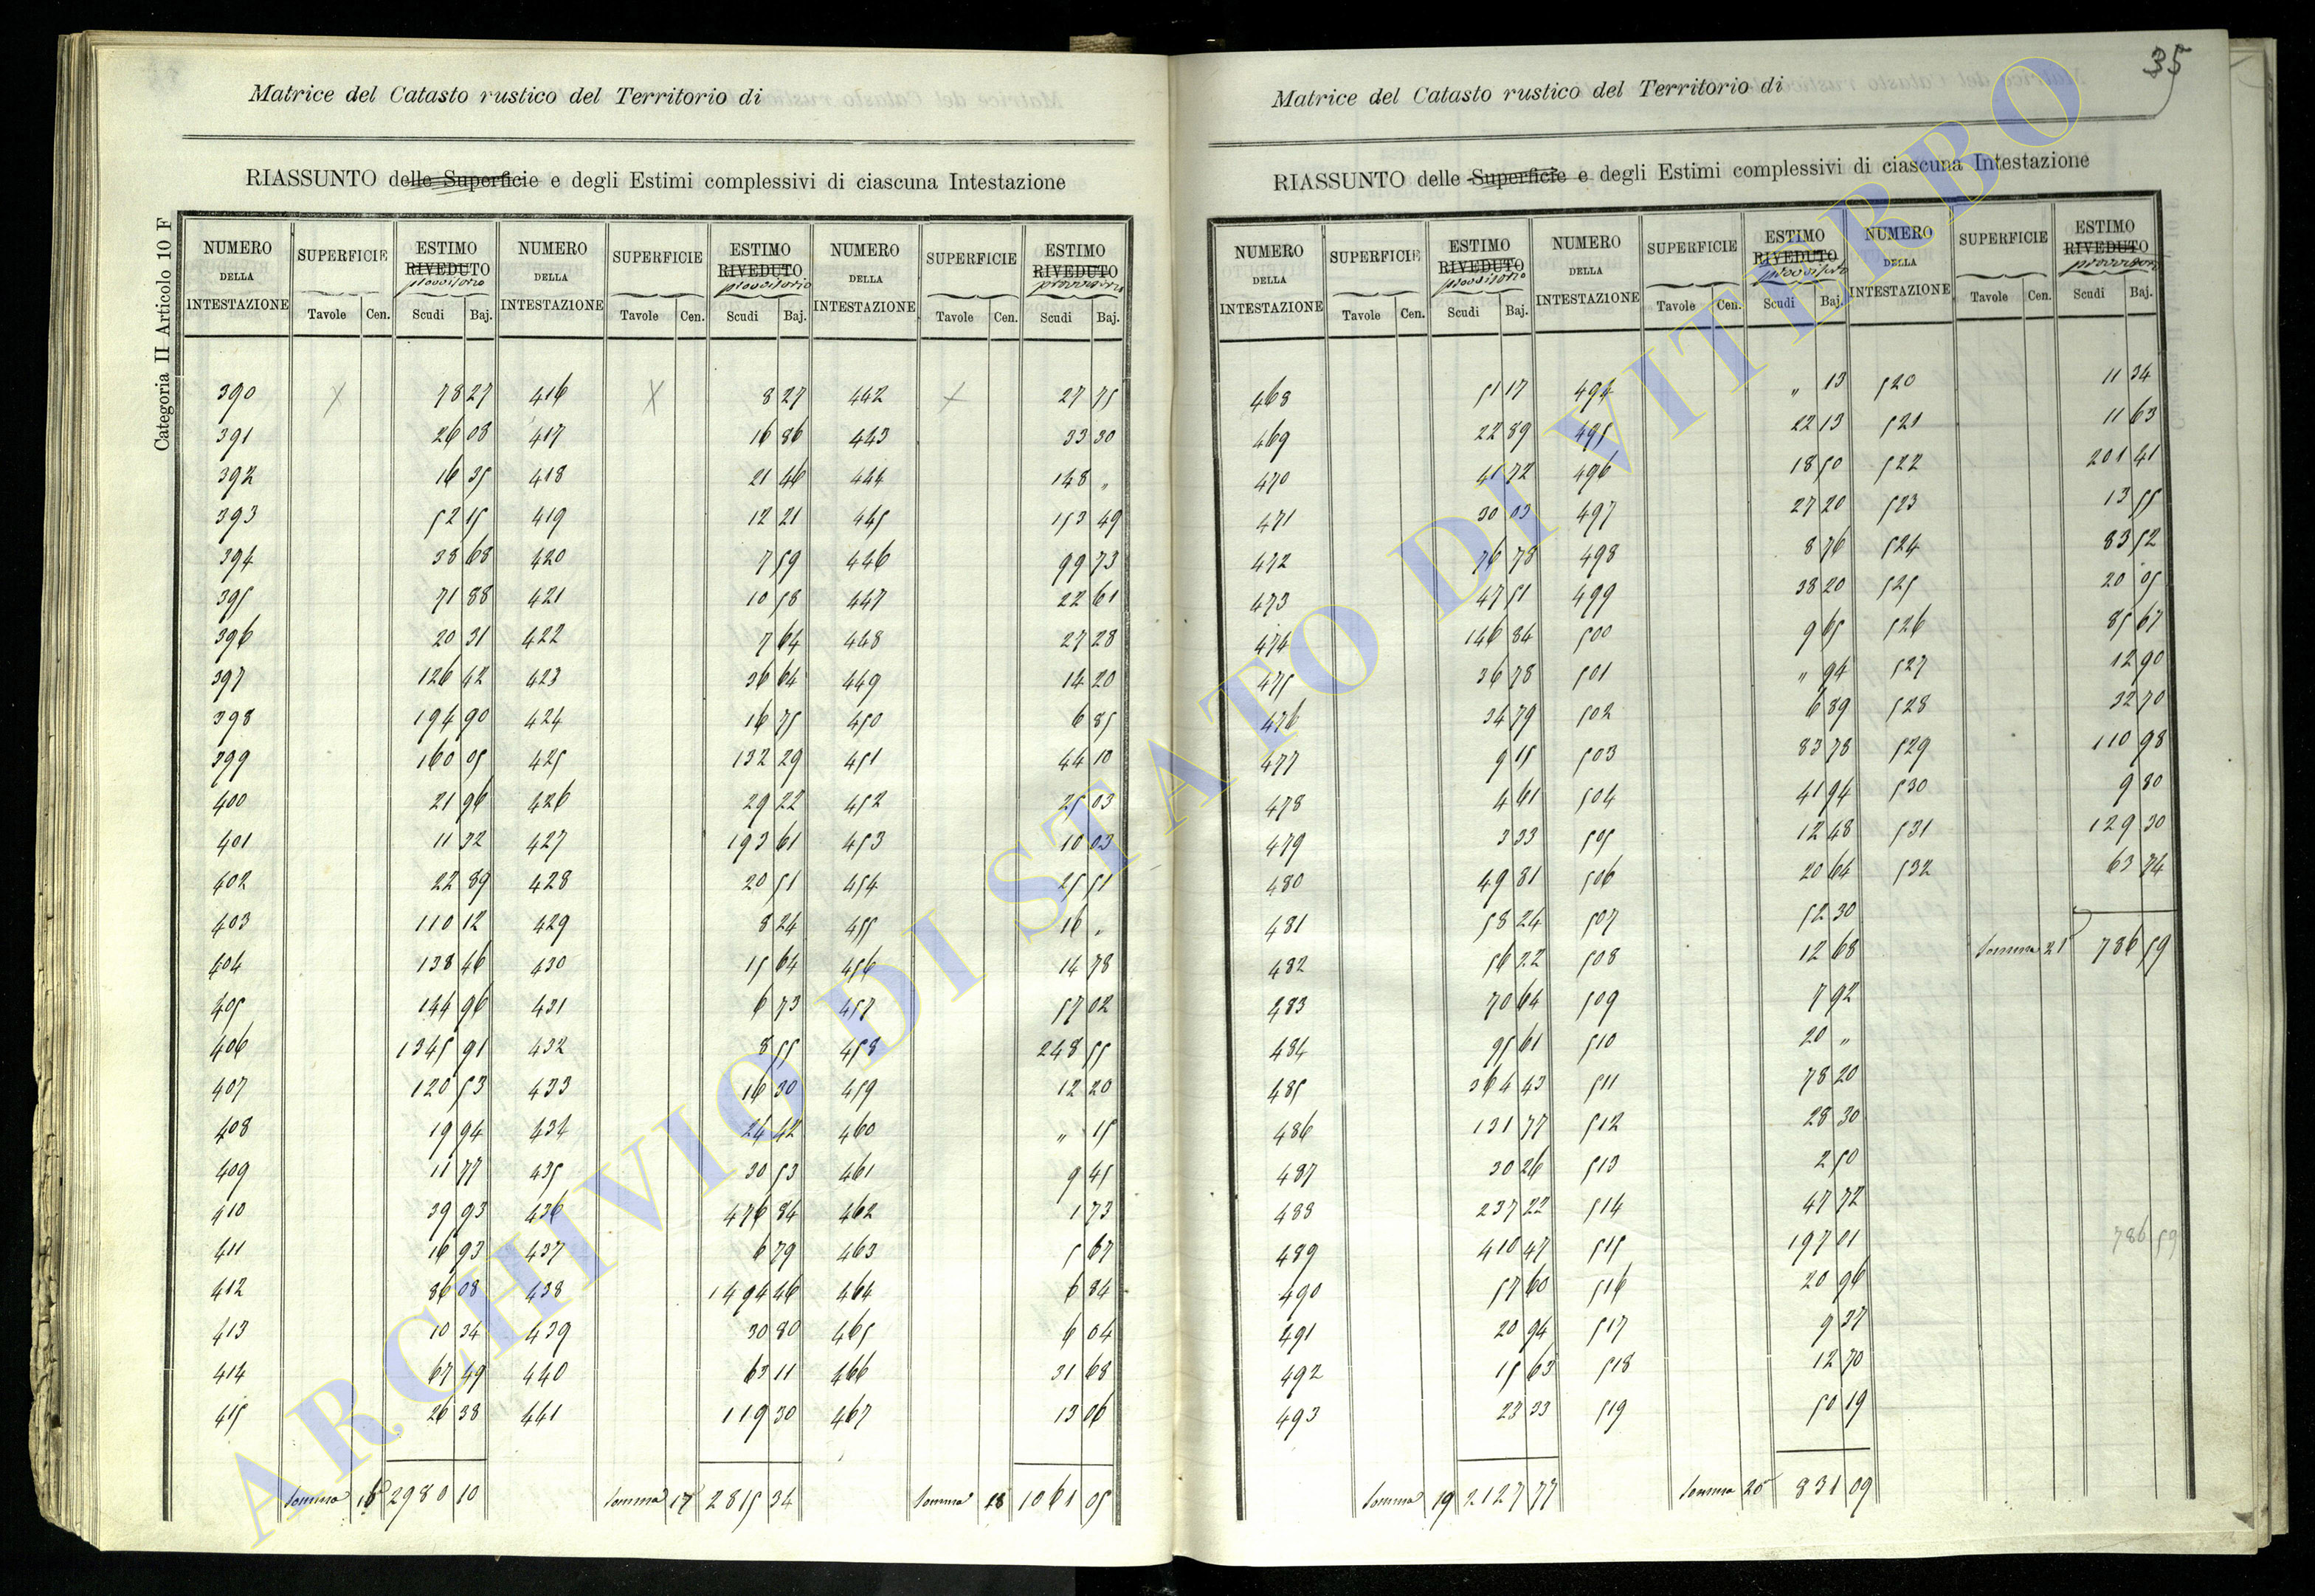 35
Matrice del Catasto rustico del Territorio di
RIASSUNTO delle Superficie e degli Estimi complessivi di ciascuna Intestazione
Categoria II Articolo 10 F
NUMERO DELLA INTESTAZIONE SUPERFICIE ESTIMO RIVEDUTO provvisorio NUMERO DELLA INTESTAZIONE SUPERFICIE ESTIMO RIVEDUTO provvisorio NUMERO DELLA INTESTAZIONE SUPERFICIE ESTIMO RIVEDUTO provvisorio
Tavole Cen. Scudi Baj. Tavole Cen. Scudi Baj. Tavole Cen. Scudi Baj.
390 X 78 27 416 X 8 27 442 X 27 75
391 26 08 417 16 86 443 33 30
392 16 35 418 21 46 444 148 „
393 52 15 419 12 21 445 153 49
394 38 68 420 7 59 446 99 73
395 71 88 421 10 58 447 22 61
396 20 31 422 7 64 448 27 28
397 126 42 423 36 64 449 14 20
398 194 90 424 16 75 450 6 85
399 160 05 425 132 29 451 44 10
400 21 96 426 29 22 452 25 03
401 11 32 427 193 61 453 10 03
402 22 89 428 20 51 454 25 51
403 110 12 429 8 24 455 16 „
404 138 46 430 15 64 456 14 78
405 144 96 431 6 73 457 57 02
406 1345 91 432 8 55 458 248 55
407 120 53 433 16 30 459 12 20
408 19 94 434 24 42 460 „ 15
409 11 77 435 30 53 461 9 45
410 39 93 436 476 84 462 1 73
411 16 93 437 6 79 463 5 67
412 86 08 438 1494 46 464 6 84
413 10 34 439 30 80 465 6 04
414 67 49 440 63 11 466 31 68
415 26 38 441 119 30 467 13 06
Somma 16 2980 10 Somma 17 2815 34 Somma 18 1061 05
Matrice del Catasto rustico del Territorio di
RIASSUNTO delle Superficie e degli Estimi complessivi di ciascuna Intestazione
NUMERO DELLA INTESTAZIONE SUPERFICIE ESTIMO RIVEDUTO provvisorio NUMERO DELLA INTESTAZIONE SUPERFICIE ESTIMO RIVEDUTO provvisorio NUMERO DELLA INTESTAZIONE SUPERFICIE ESTIMO RIVEDUTO provvisorio
Tavole Cen. Scudi Baj. Tavole Cen. Scudi Baj. Tavole Cen. Scudi Baj.
468 51 17 494 „ 13 520 11 34
469 22 89 495 22 13 521 11 63
470 41 72 496 18 50 522 201 41
471 30 03 497 27 20 523 13 55
472 76 78 498 8 76 524 83 52
473 47 51 499 38 20 525 20 05
474 146 84 500 9 65 526 85 67
475 36 78 501 „ 94 527 12 90
476 34 79 502 6 89 528 32 70
477 9 15 503 83 78 529 110 98
478 4 61 504 41 94 530 9 80
479 3 33 505 12 48 531 129 30
480 49 81 506 20 64 532 63 74
481 58 24 507 52 30
482 56 22 508 12 68 Somma 21 786 59
483 70 64 509 7 92
484 95 61 510 20 „
485 364 43 511 78 20
486 131 77 512 28 30
487 30 26 513 2 50
488 237 22 514 47 72
489 410 47 515 197 01 786 59
490 57 60 516 20 96
491 20 94 517 9 37
492 15 63 518 12 70
493 23 33 519 50 19
Somma 19 2127 77 Somma 20 831 09
ARCHIVIO DI STATO DI VITERBO